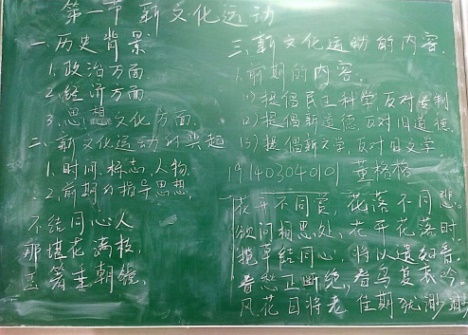 第一节 新文化运动
一.历史背景
1.政治方面
2.经济方面
3.思想文化方面.
二.新文化运动的兴起
1.时间.标志.人物.
2.前期的指导思想.
三.新文化运动的内容.
1.前期的内容.
(1)提倡民主科学,反对专制
(2)提倡新道德,反对旧道德.
(3)提倡新文学,反对旧文学
191403040101 董格格
花开不同赏,花落不同悲.
欲问相思处,花开花落时.
揽草结同心,将以遗知音.
春愁正断绝,春鸟复哀吟.
风花日将老,佳期犹渺渺.
不结同心人
那堪花满枝,
玉箸垂朝镜,